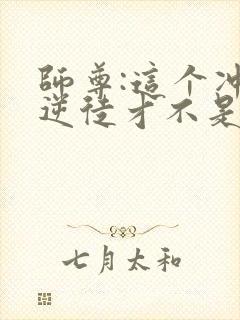 師尊:這个冲
逆徒才不是
七月太和